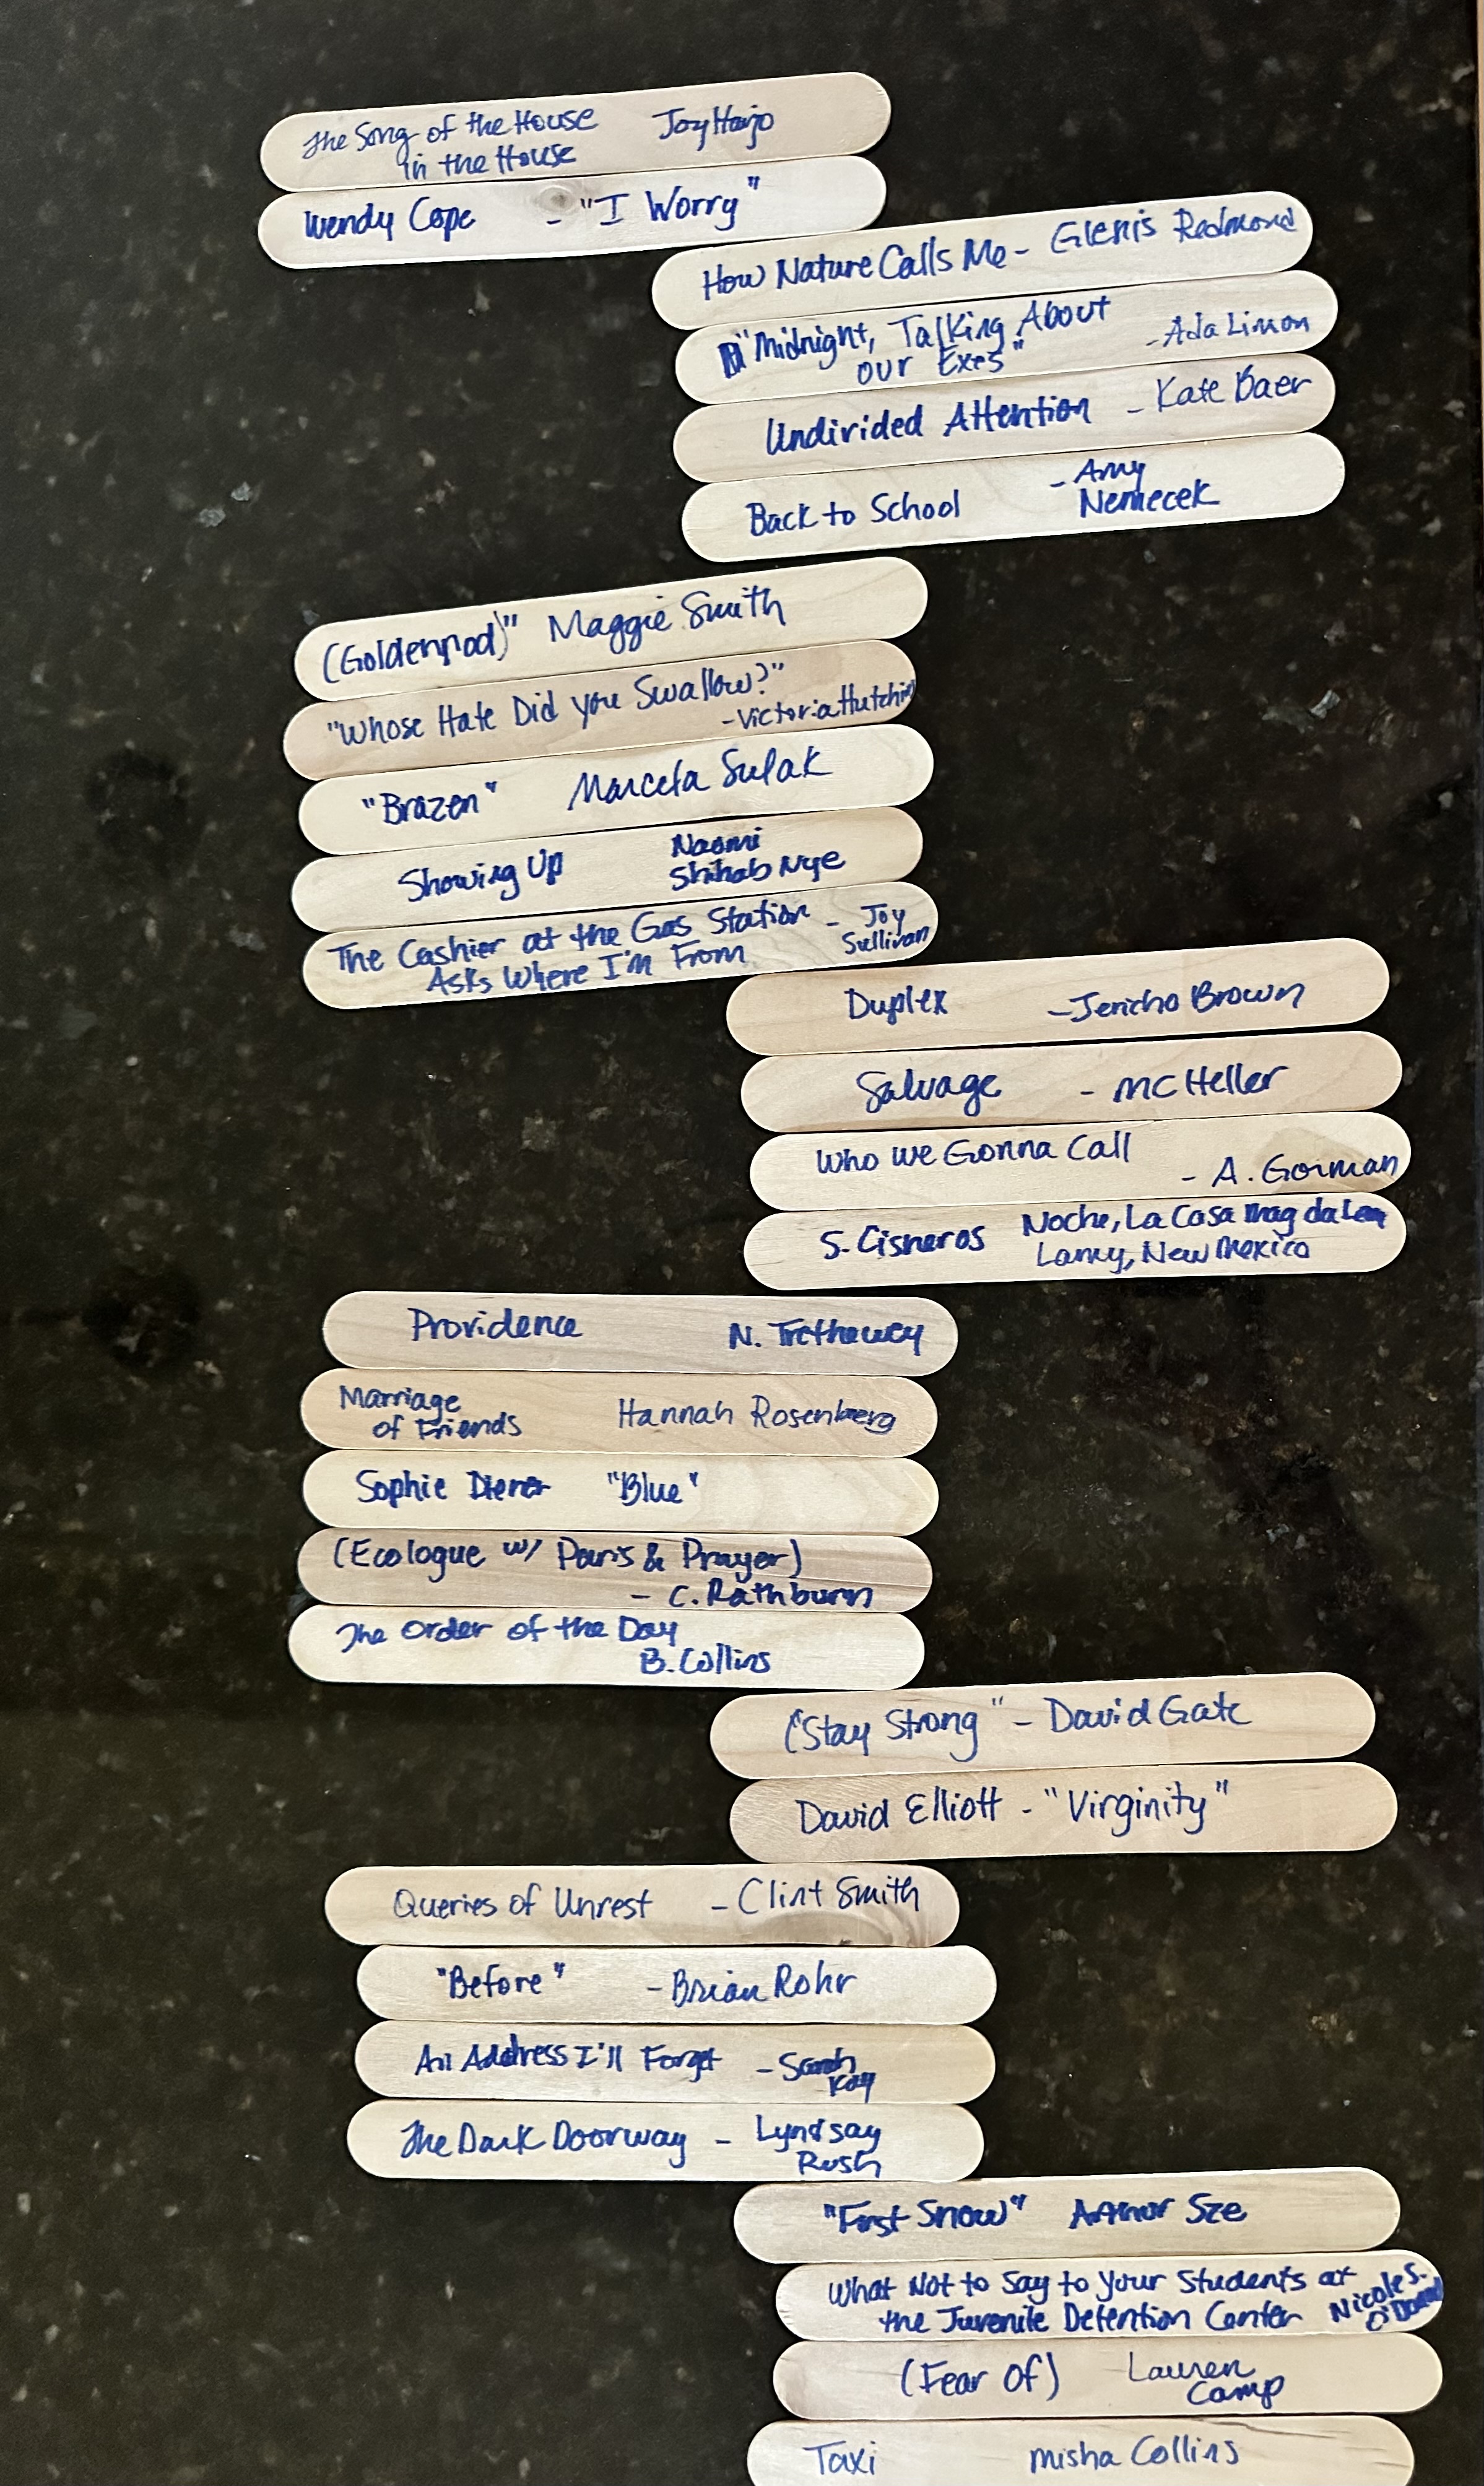 The Song of the House Joy Harjo
in the House
Wendy Cope - "I Worry"
How Nature Calls Me - Glenis Redmond
"Midnight, Talking About
our Exes" - Ada Limon
Undivided Attention - Kate Baer
Back to School - Amy
Nemecek
(Goldenrod)" Maggie Smith
"Whose Hate Did you Swallow?"
- Victoria Hutchins
"Brazen" Marcela Sulak
Showing Up Naomi
Shihab Nye
The Cashier at the Gas Station - Joy
Asks Where I'm From Sullivan
Duplex - Jericho Brown
Salvage - MC Heller
Who We Gonna Call
- A. Gorman
S. Cisneros Noche, La Casa Magdalena
Lamy, New Mexico
Providence N. Trethewey
Marriage
of Friends Hannah Rosenberg
Sophie Diener "Blue"
(Ecologue w/ Paris & Prayer)
- C. Rathburn
The Order of the Day
B. Collins
("Stay Strong" - David Gate
David Elliott - "Virginity"
Queries of Unrest - Clint Smith
"Before" - Brian Rohr
An Address I'll Forget - Sarah
Kay
The Dark Doorway - Lyndsay
Rush
"First Snow" Arthur Sze
What Not to Say to Your Students at
the Juvenile Detention Center Nicole S.
(Fear Of) Lauren
Camp
Taxi Misha Collins